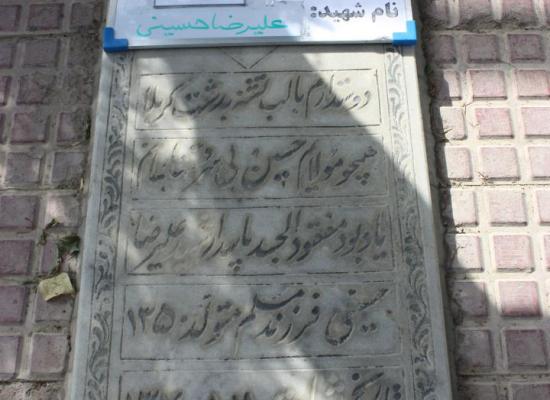 نام شهید:
علیرضا حسینی
دوستدارم بالب تشنه بدشت کربلا
همچو مولایم حسین بی سر
یادبود مفقودالجسد پاسدار شهید علیرضا
حسینی فرزند مسلم متولد ۱۳۵